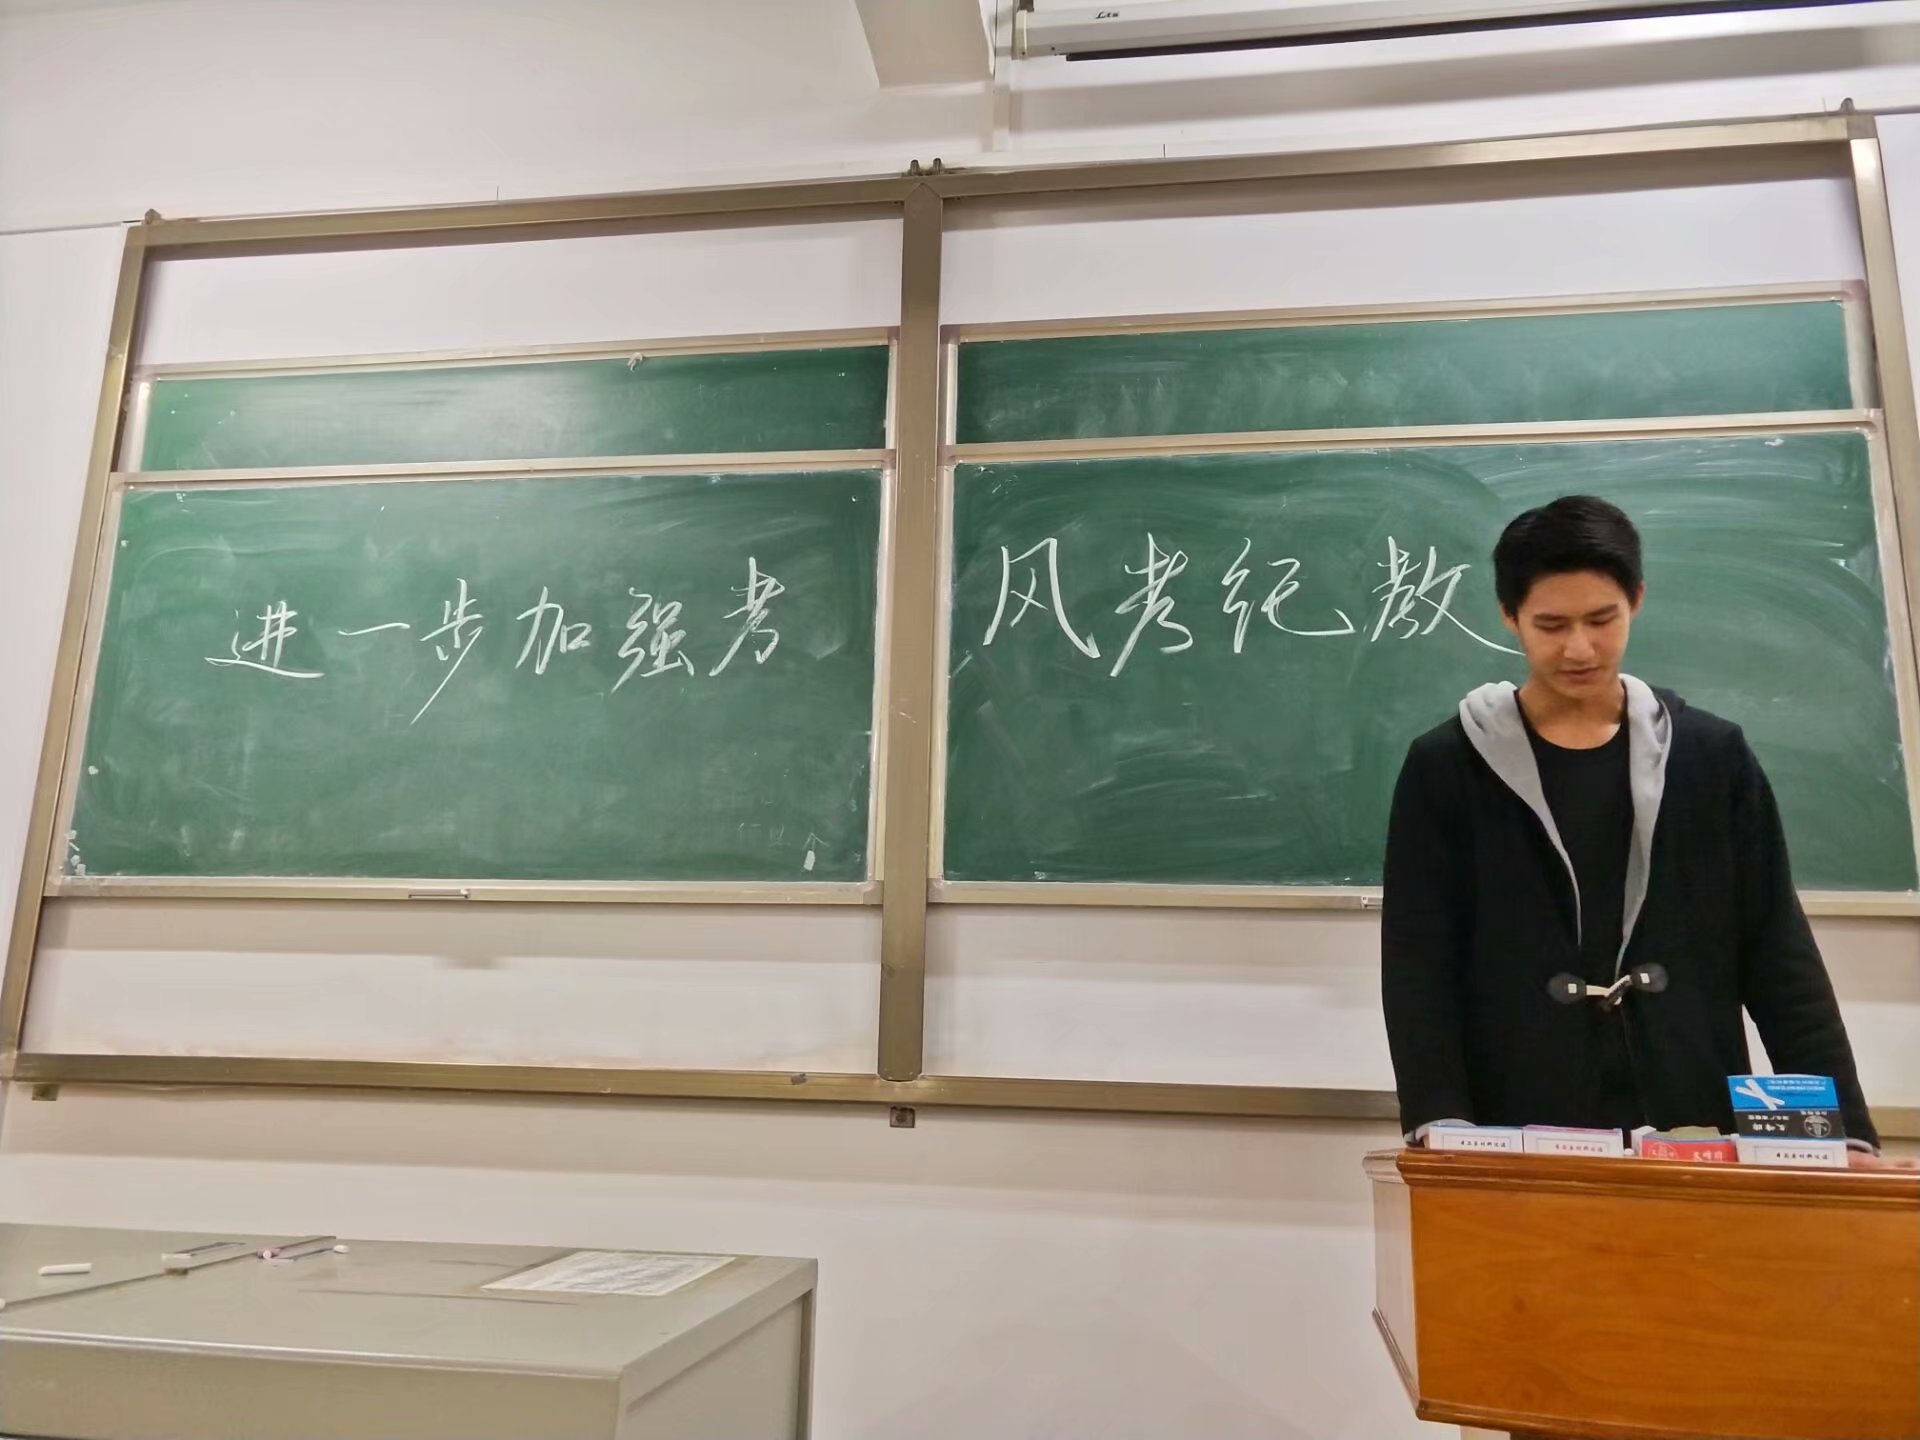 进一步加强考风考纪教